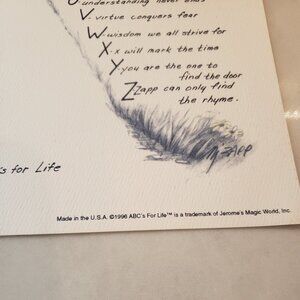 U understanding never ends
V - virtue conquers fear
W wisdom we all strive for
X - x will mark the time
Y you are the one to
find the door
Z Zapp can only find
the rhyme.
's for Life
ZAPP
Made in the U.S.A. ©1996 ABC's For Life™ is a trademark of Jerome's Magic World, Inc.